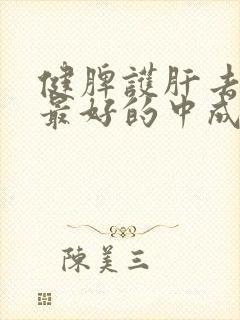 健脾護肝去
最好的中成
陳美三